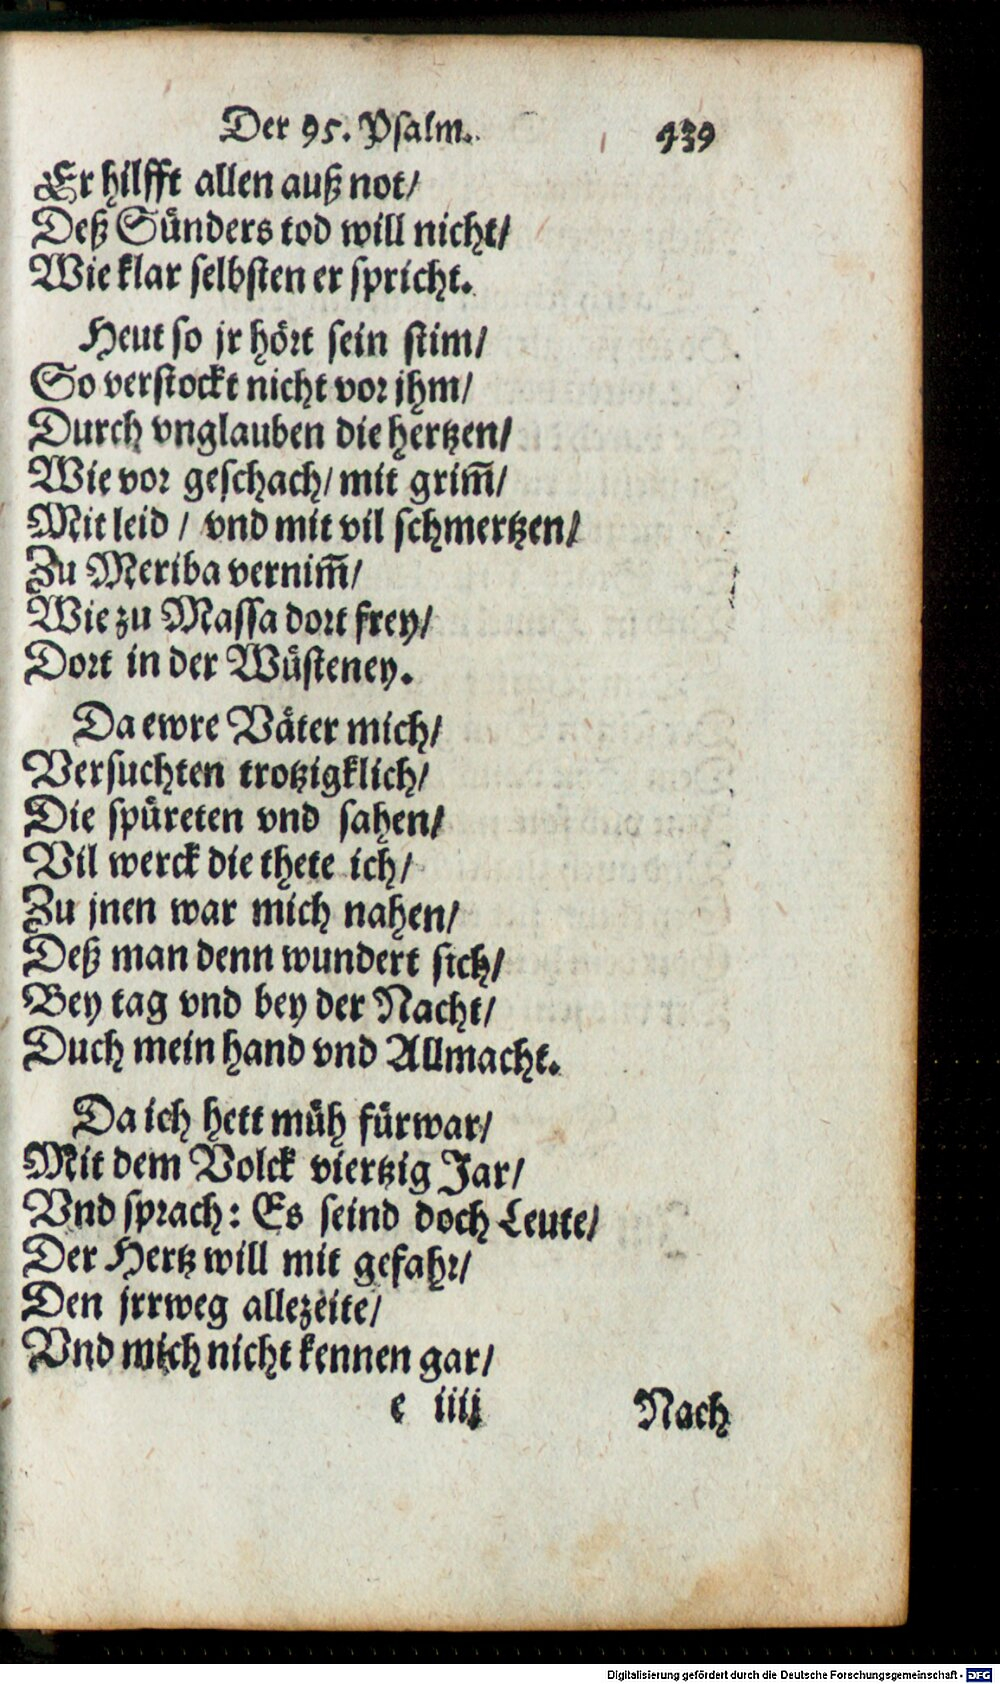 Der 95. Psalm. 439
Er hilfft allen auß not/
Deß Sünders tod will nicht/
Wie klar selbsten er spricht.
Heut so jr hört sein stim/
So verstockt nicht vor jhm/
Durch vnglauben die hertzen/
Wie vor geschach/ mit grim̃/
Mit leid / vnd mit vil schmertzen/
Zu Meriba vernim̃/
Wie zu Massa dort frey/
Dort in der Wüsteney.
Da ewre Väter mich/
Versuchten trotzigklich/
Die spüreten vnd sahen/
Vil werck die thete ich/
Zu jnen war mich nahen/
Deß man denn wundert sich/
Bey tag vnd bey der Nacht/
Duch mein hand vnd Allmacht.
Da ich hett müh fürwar/
Mit dem Volck viertzig Jar/
Vnd sprach: Es seind doch Leute/
Der Hertz will mit gefahr/
Den jrrweg allezeite/
Vnd mich nicht kennen gar/
e iiij Nach
Digitalisierung gefördert durch die Deutsche Forschungsgemeinschaft - DFG